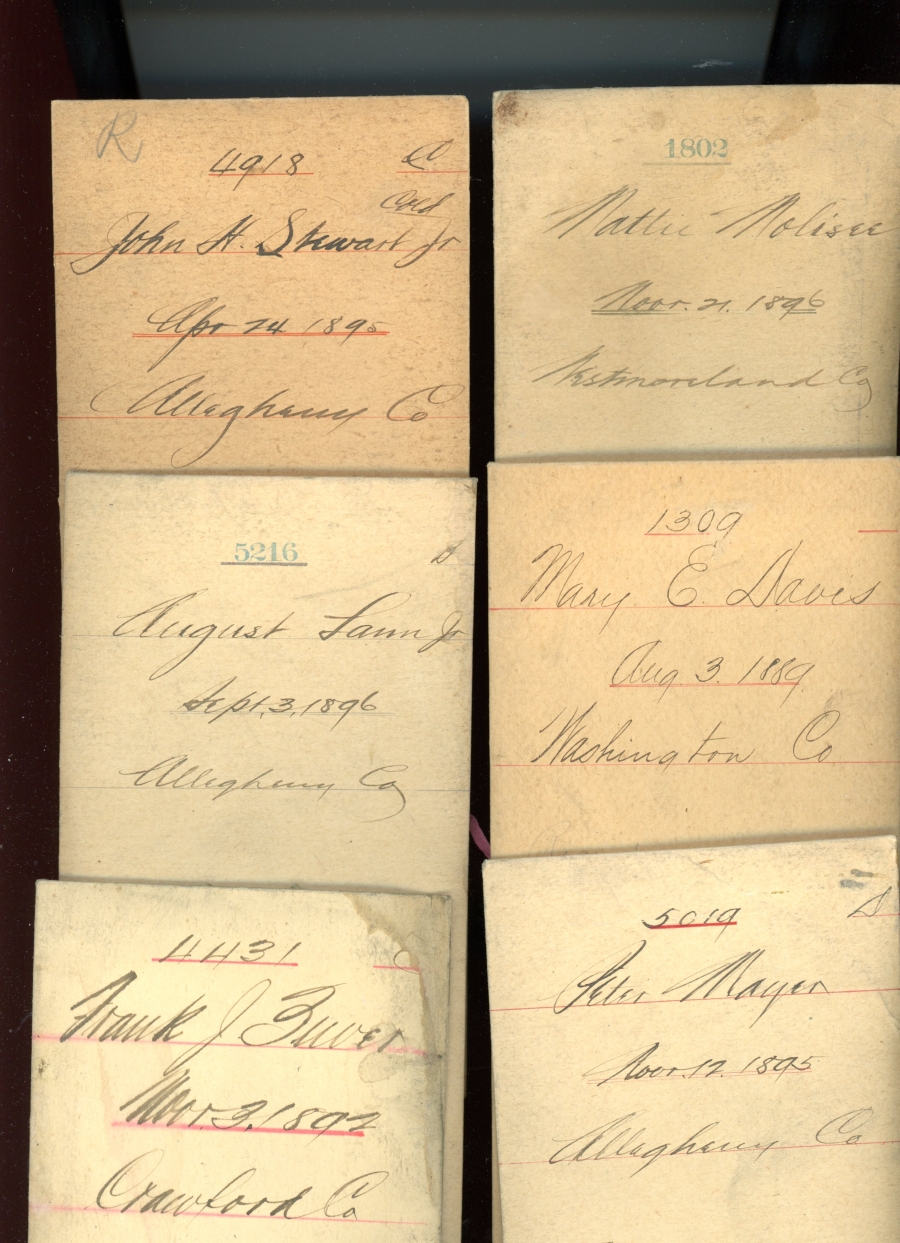 R
4918
Cold
John H. Stewart Jr
Apr 24 1895
Allegheny Co
1802
Mattie
Novr. 21. 1896
Westmoreland Co
5216 D
August Lann Jr
Sept. 3, 1896
Allegheny Co
1309
Mary E. Davis
Aug 3. 1889
Washington Co
4431 C
Frank J
Novr 3, 1892
Crawford Co
5019 D
Peter Mayer
Novr. 12. 1895
Allegheny Co